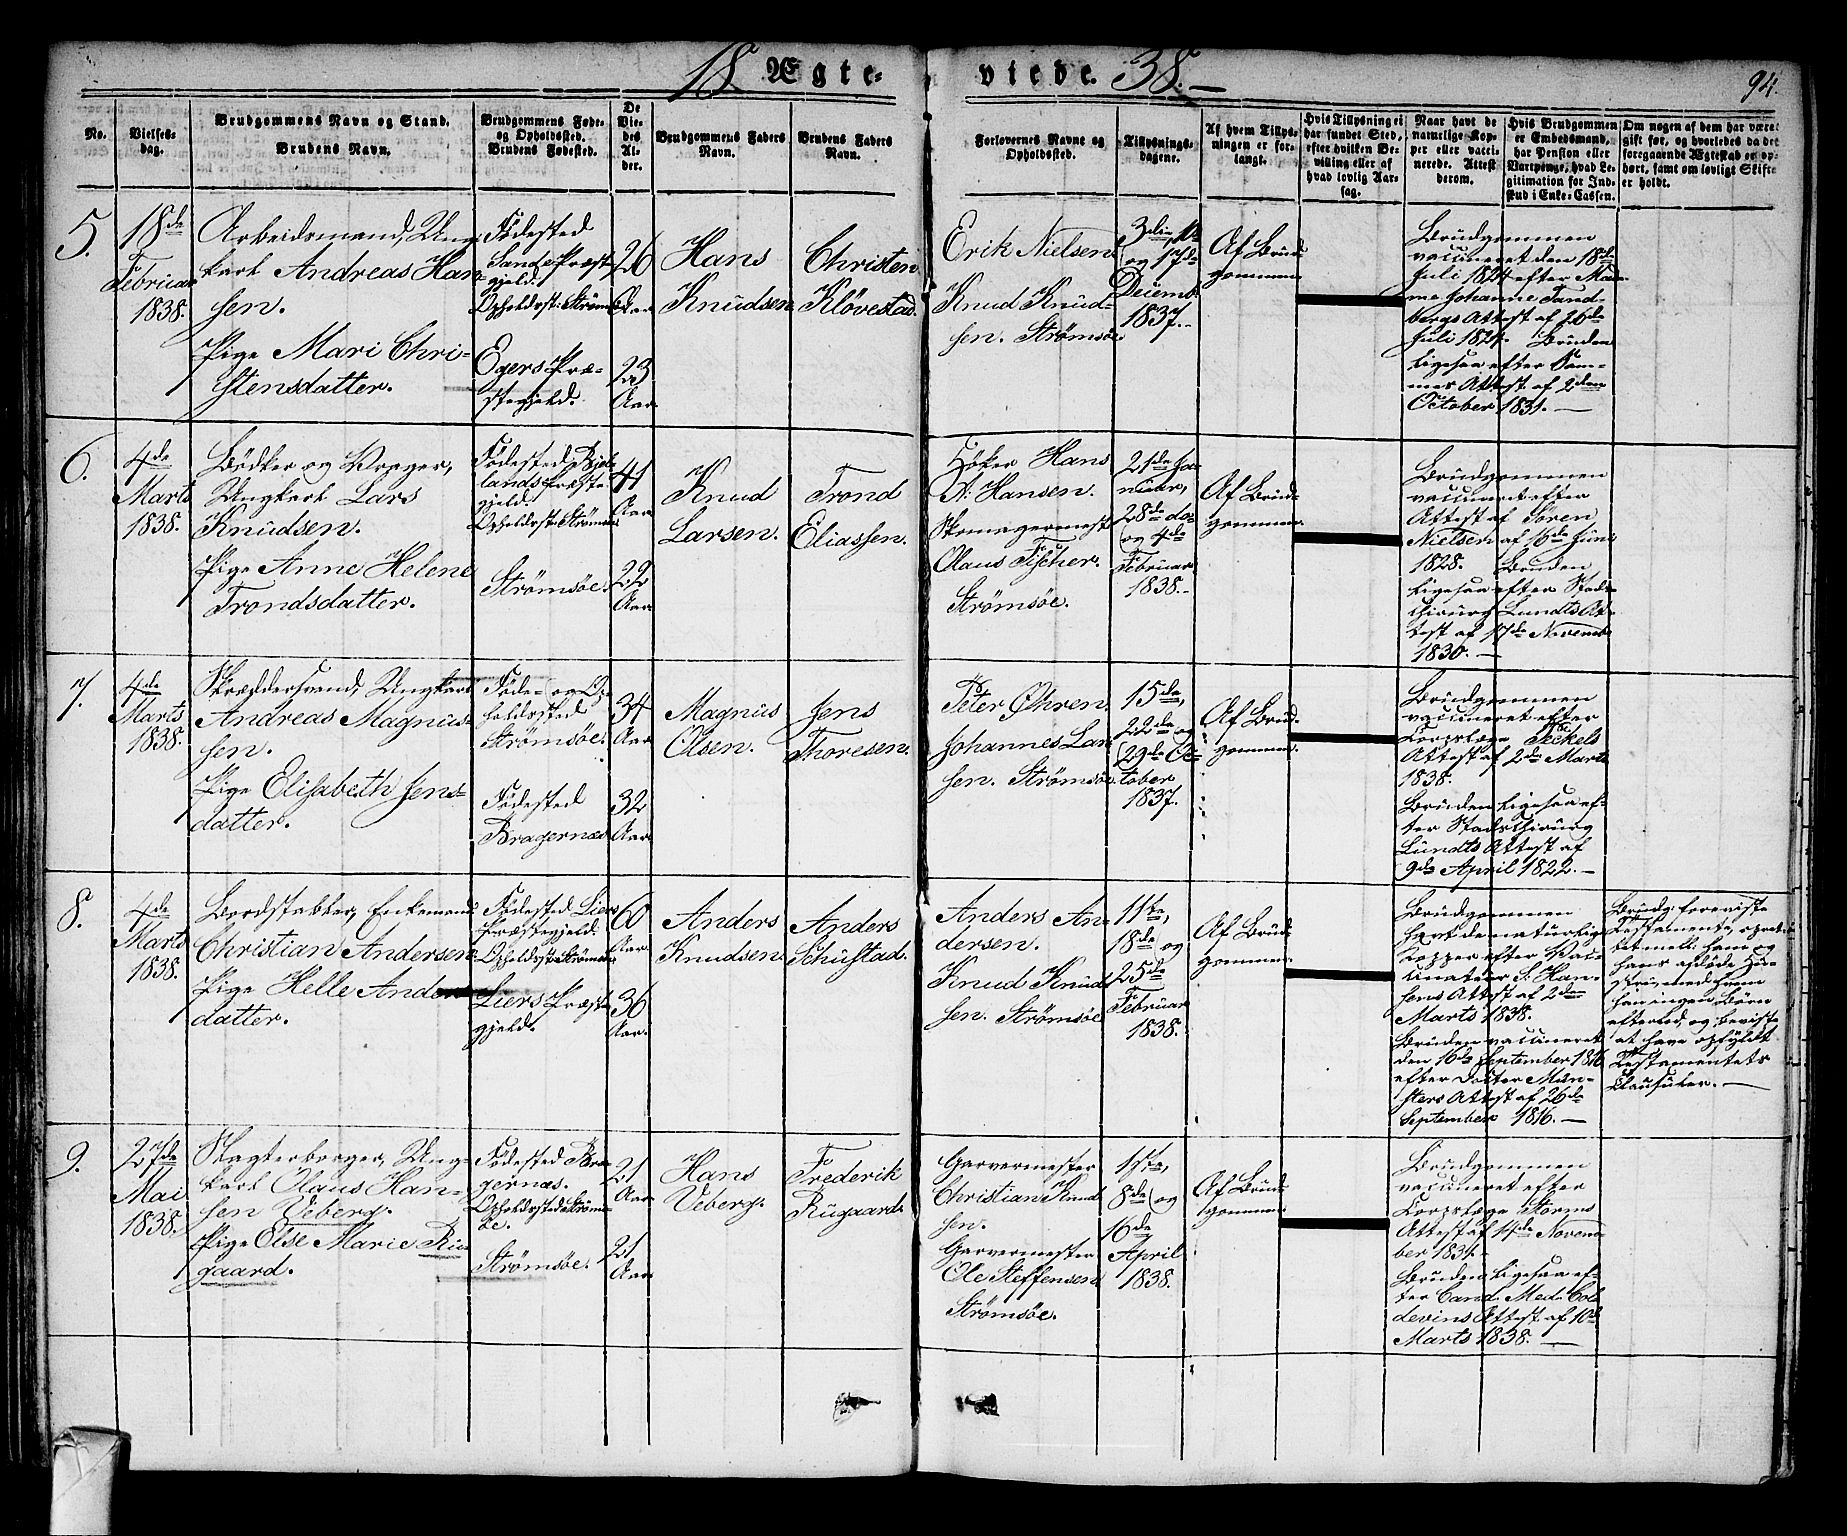 18 Ægteviede. 38.
94.
No.
Vielsesdag.
Brudgommens Navn og Stand.
Brudens Navn.
Brudgommens Føde-
og Opholdssted.
Brudens Fødested.
De
Vie-
des
Al-
der.
Brudgommens Faders
Navn.
Brudens Faders
Navn.
Forlovernes Navne og
Opholdssted.
Tillysnings-
dagene.
Af hvem Tillys-
ningen er for-
langt.
Hvis Tillysning ei
har fundet Sted,
efter hvilken Be-
villing eller af
hvad lovlig Aar-
sag.
Naar havt de
naturlige Kop-
per eller vacci-
nerede. Attest
derom.
Hvis Brudgommen
er Embedsmand,
har Pension eller
Vartpenge, hvad Le-
gitimation for Ind-
skud i Enke-Cassen.
Om nogen af dem har været
gift før, og hvorledes da det
foregaaende Ægteskab er op-
hørt, samt om lovligt Skifte
er holdt.
5.
18de
Februar
1838.
Arbeidsmand, Ung-
karl Andreas Han-
sen.
Pige Mari Chri-
stensdatter.
Fødested
Sande Præste-
gjeld.
Opholdsst: Strømsøe
Egers Præ-
stegjeld.
26
Aar
23
Aar
Hans
Knudsen
Christen
Kløvestad.
Erik Nielsen
Knud Knud-
sen. Strømsøe
3die, 10de
og 17de
Decemb.
1837.
Af Brud-
gommen
Brudgommen
vaccineret den 18de
Juli 1824 efter Mada-
me Johanne Sand-
bergs Attest af 26de
Juli 1824. Bruden
ligesaa efter Sam-
mes Attest af 2den
October 1831.
6.
4de
Marts
1838.
Bødker og Vrager,
Ungkarl Lars
Knudsen.
Pige Anne Helene
Trondsdatter.
Fødested
lands Præste-
gjeld.
Opholdsst: Strømsøe
Strømsøe.
41
Aar
22
Aar
Knud
Larsen.
Trond
Eliassen.
Høker Hans
A: Hansen.
Skomagermest
Olaus Fischer.
Strømsøe.
21de Ja-
nuar,
28de do
og 4de
Februar
1838.
Af Brud-
gommen.
Brudgommen
vaccineret efter
Attest af Søren
Nielsen af 16de Juni
1828. Bruden
ligesaa efter Stads-
chirurg Lundts At-
test af 17de Novemb.
1830.
7.
4de
Marts
1838.
Skræddersvend, Ungkarl
Andreas Magnus-
sen.
Pige Elisabeth Jens-
datter.
Føde- og Op-
holdssted
Strømsøe.
Fødested
Bragernæs
34
Aar
32
Aar
Magnus
Olsen.
Jens
Thoresen.
Peter Øhren.
Johannes Lar-
sen. Strømsøe
15de,
22de og
29de Oc-
tober
1837.
Af Brud-
gommen.
Brudgommen
vaccineret efter
Corpslæge Peckels
Attest af 2de Marts
1838.
Bruden ligesaa ef-
ter Stadschirurg
Lundts Attest af
9de April 1822.
8.
4de
Marts
1838.
Bordstabler, Enkemand
Christian Andersen.
Pige Helle Anders-
datter.
Fødested Liers
Præstegjeld.
Opholdsst: Strømsøe
Liers Præste-
gjeld.
60
Aar
36
Aar.
Anders
Knudsen.
Anders
Schustad.
Anders An-
dersen.
Knud Knud-
sen. Strømsøe
11te,
18de og
25de
Februar
1838.
Af Brud-
gommen
Brudgommen
havt de naturlige
Kopper efter Vac-
cinateur S: Han-
sens Attest af 2den
Marts 1838.
Bruden vaccineret
den 16de September 1816
efter Docter Mün-
sters Attest af 26de
September 1816.
Brudg: foreviste
Testamente, opret-
tet mell: ham og
hans afdøde Hu-
stru, med hvem
han ingen Børn
efterlod, og beviste
at have opfyldt
Testamentets
Clausuler.
9.
27de
Mai
1838.
Slagterborger, Ung-
karl Olaus Han-
sen Veberg.
Pige Else Marie Ru-
gaard.
Fødested Bra-
gernæs.
Opholdssted Strøms-
øe.
Strømsøe.
21
Aar
21
Aar
Hans
Veberg.
Frederik
Rugaard.
Garvermester
Christian Knud-
sen.
Garvermester
Ole Steffensen
Strømsøe.
1ste,
8de og
16de
April
1838.
Af Brud-
gommen.
Brudgommen
vaccineret efter
Corpslæge Storms
Attest af 14de Novem-
ber 1834.
Bruden ligesaa ef-
ter Cand. Med. Col-
devins Attest af 10de
Marts 1838.